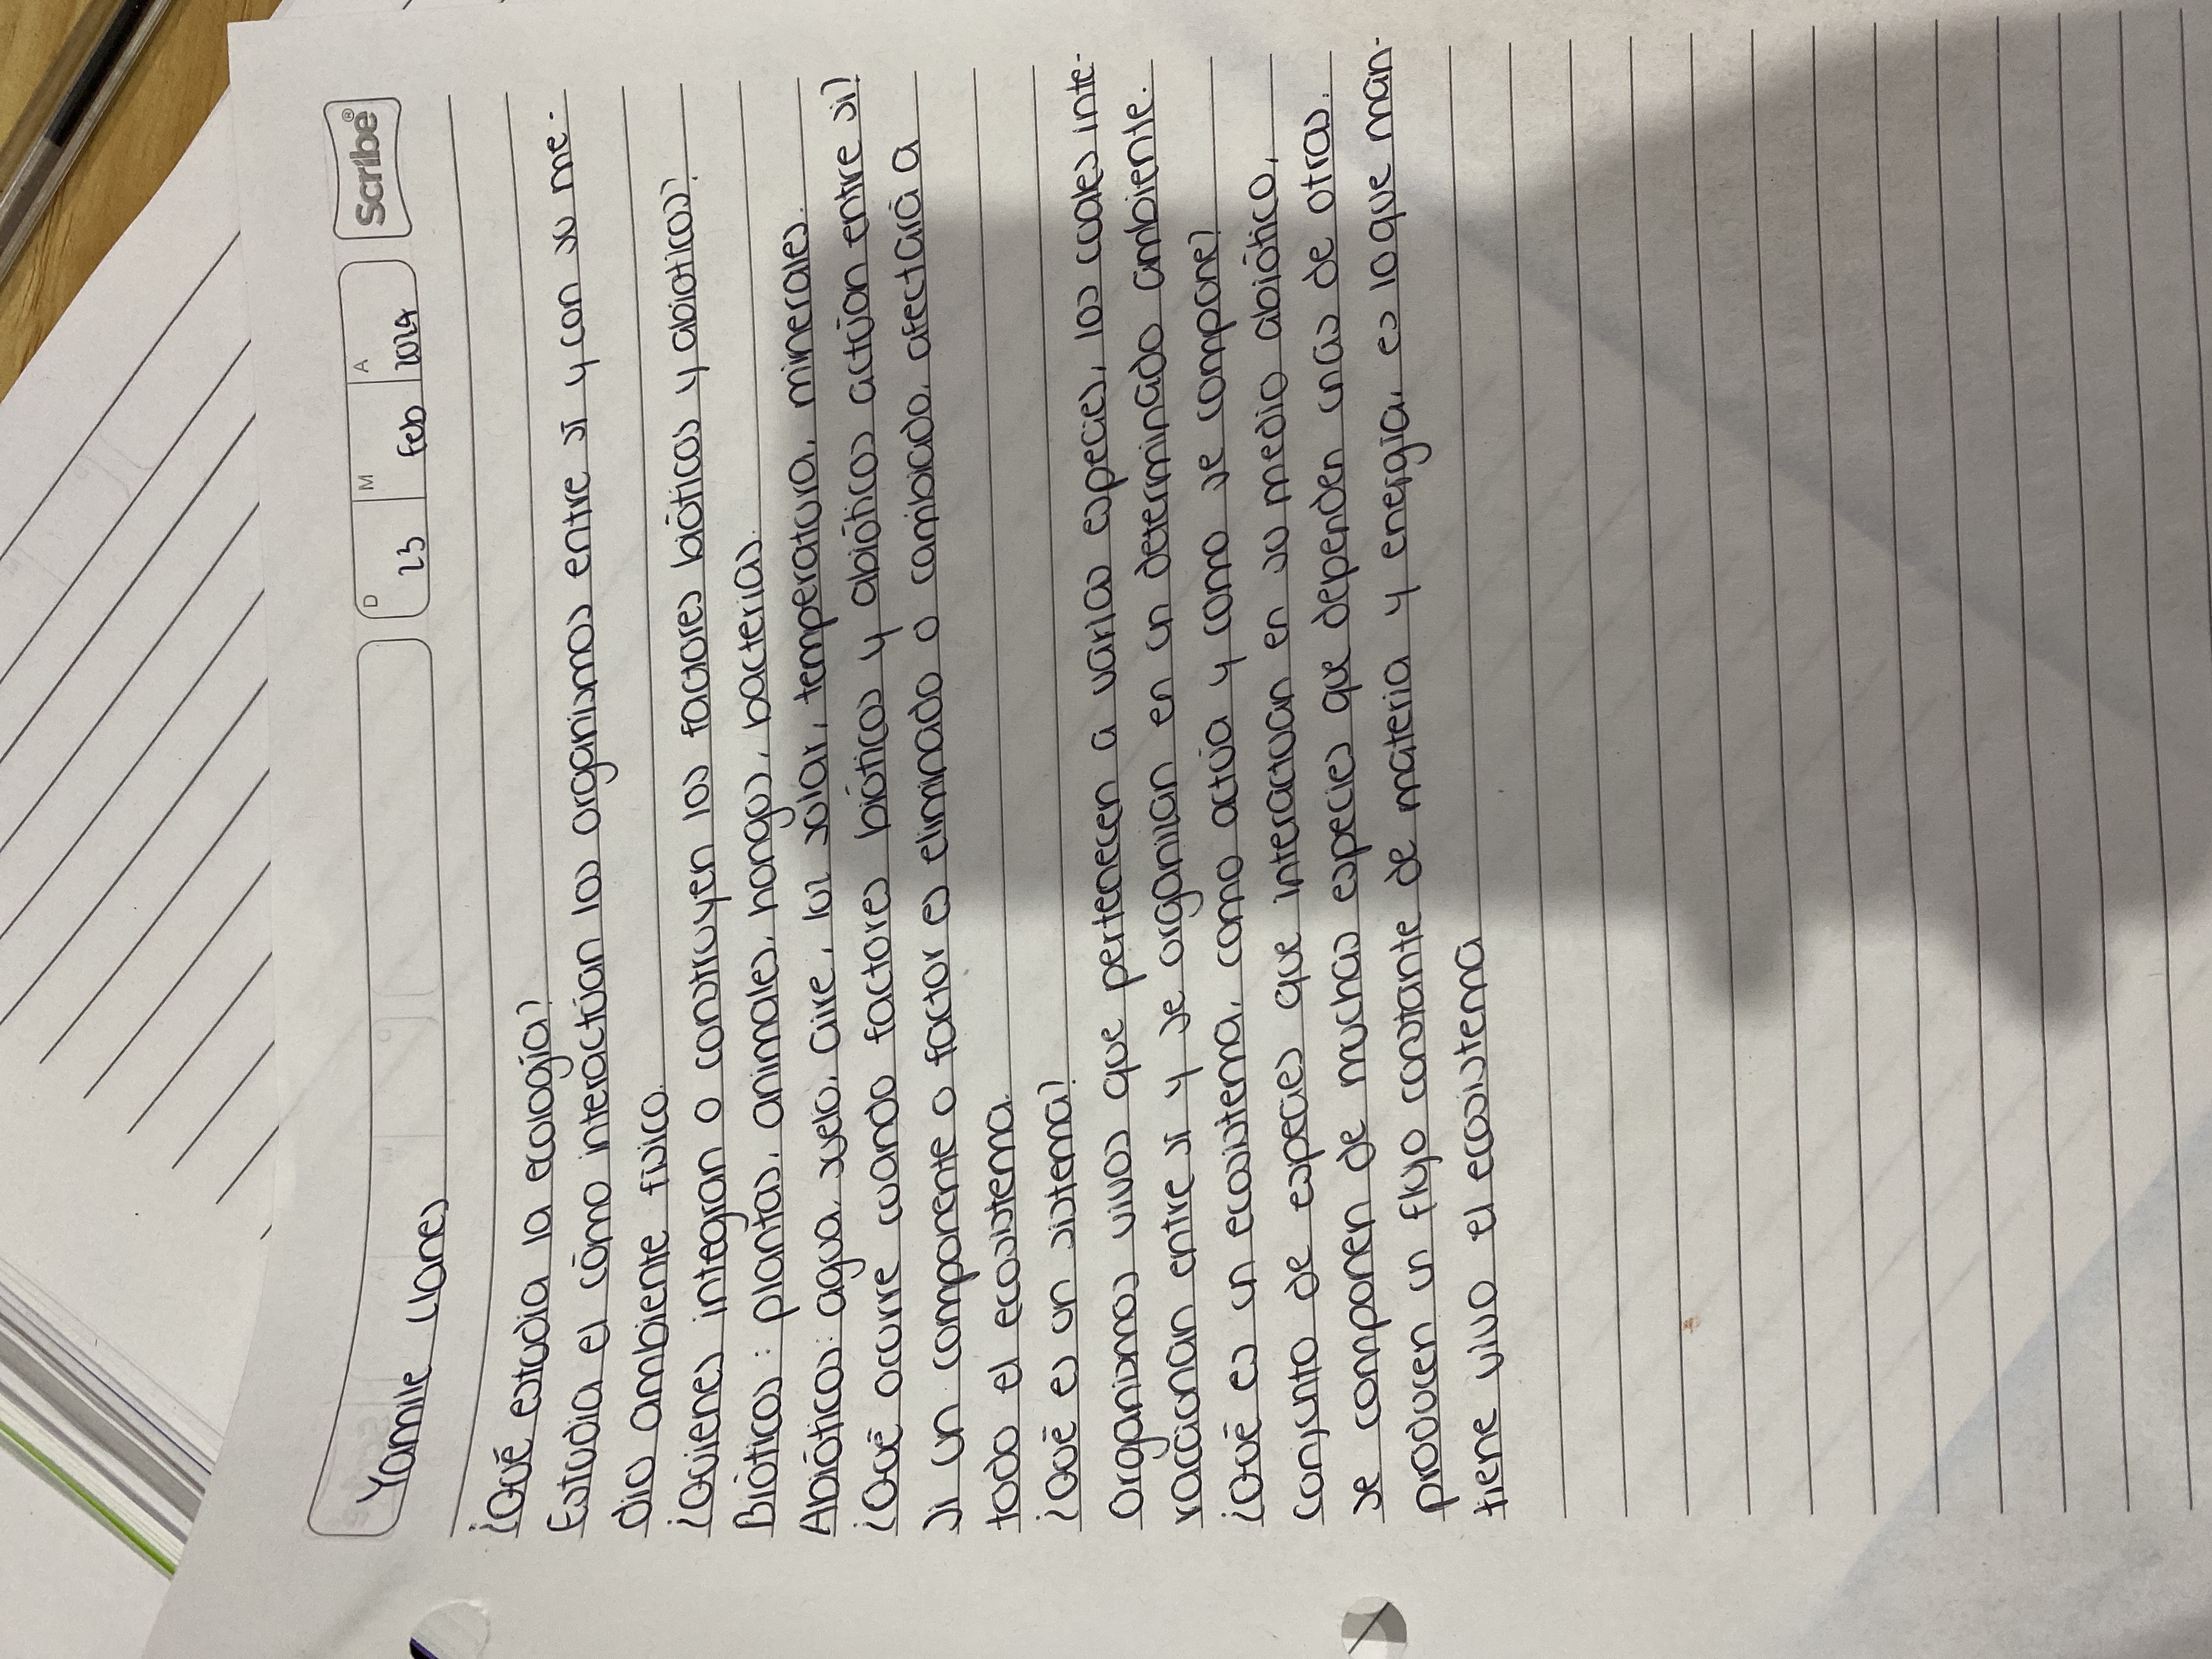 Scribe®
D M A
23 Feb 2024
Yamile Llanes
¿Qué estudia la ecología?
Estudia el cómo interactúan los organismos entre sí y con su me-
dio ambiente físico.
¿Quienes integran o construyen los factores bióticos y abioticos?
Bióticos: plantas, animales, hongos, bacterias.
Abióticos: agua, suelo, aire, luz solar, temperatura, minerales.
¿Qué ocurre cuando factores bióticos y abióticos actúan entre si?
Si un componente o factor es eliminado o cambiado, afectará a
todo el ecosistema.
¿Qué es un sistema?
Organismos vivos que pertenecen a varias especies, los cuales inte-
raccionan entre si y se organizan en un determinado ambiente.
¿Qué es un ecosistema, como actúa y como se compone?
Conjunto de especies que interactuan en su medio abiótico,
se componen de muchas especies que dependen unas de otras.
producen un flujo constante de materia y energía, es lo que man-
tiene vivo el ecosistema